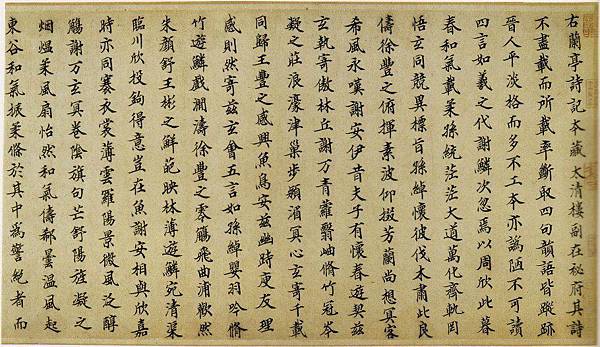 右蘭亭詩記本藏太清樓副在秘府其詩
不盡載而所載率斷取四句韻語皆蹤跡
晉人平淡格而多不工本亦陋不可讀
四言如羲之代謝鱗次忽焉以周欣此暮
春和氣載柔孫統茫茫大道萬化齊軌罔
悟玄同競異標旨孫綽懷彼伐木肅此良
儔徐豐之俯揮素波仰掇芳蘭尚想冥客
希風永嘆謝安伊昔夫子有懷春遊契茲
玄執寄傲林丘謝万青蘿翳岫脩竹冠岑
凝之莊浪濠津巢步潁湄冥心玄寄千載
同歸王豐之感興魚鳥安茲幽時庾友理
感則然寄茲玄會五言如孫綽嬰羽吟脩
竹遊鱗戲瀾濤徐豐之零觴飛曲浦歡然
朱顏舒王彬之鮮葩映林薄遊鱗宛清渠
臨川欣投釣得意豈在魚謝安相與欣嘉
時亦同褰衣裳薄雲羅陽景微風泛醇
觴謝万玄冥卷陰旗句芒舒陽旌凝之
烟熅柔風扇怡然和氣儔郗曇温風起
東谷和氣振柔條於其中為警絕者而